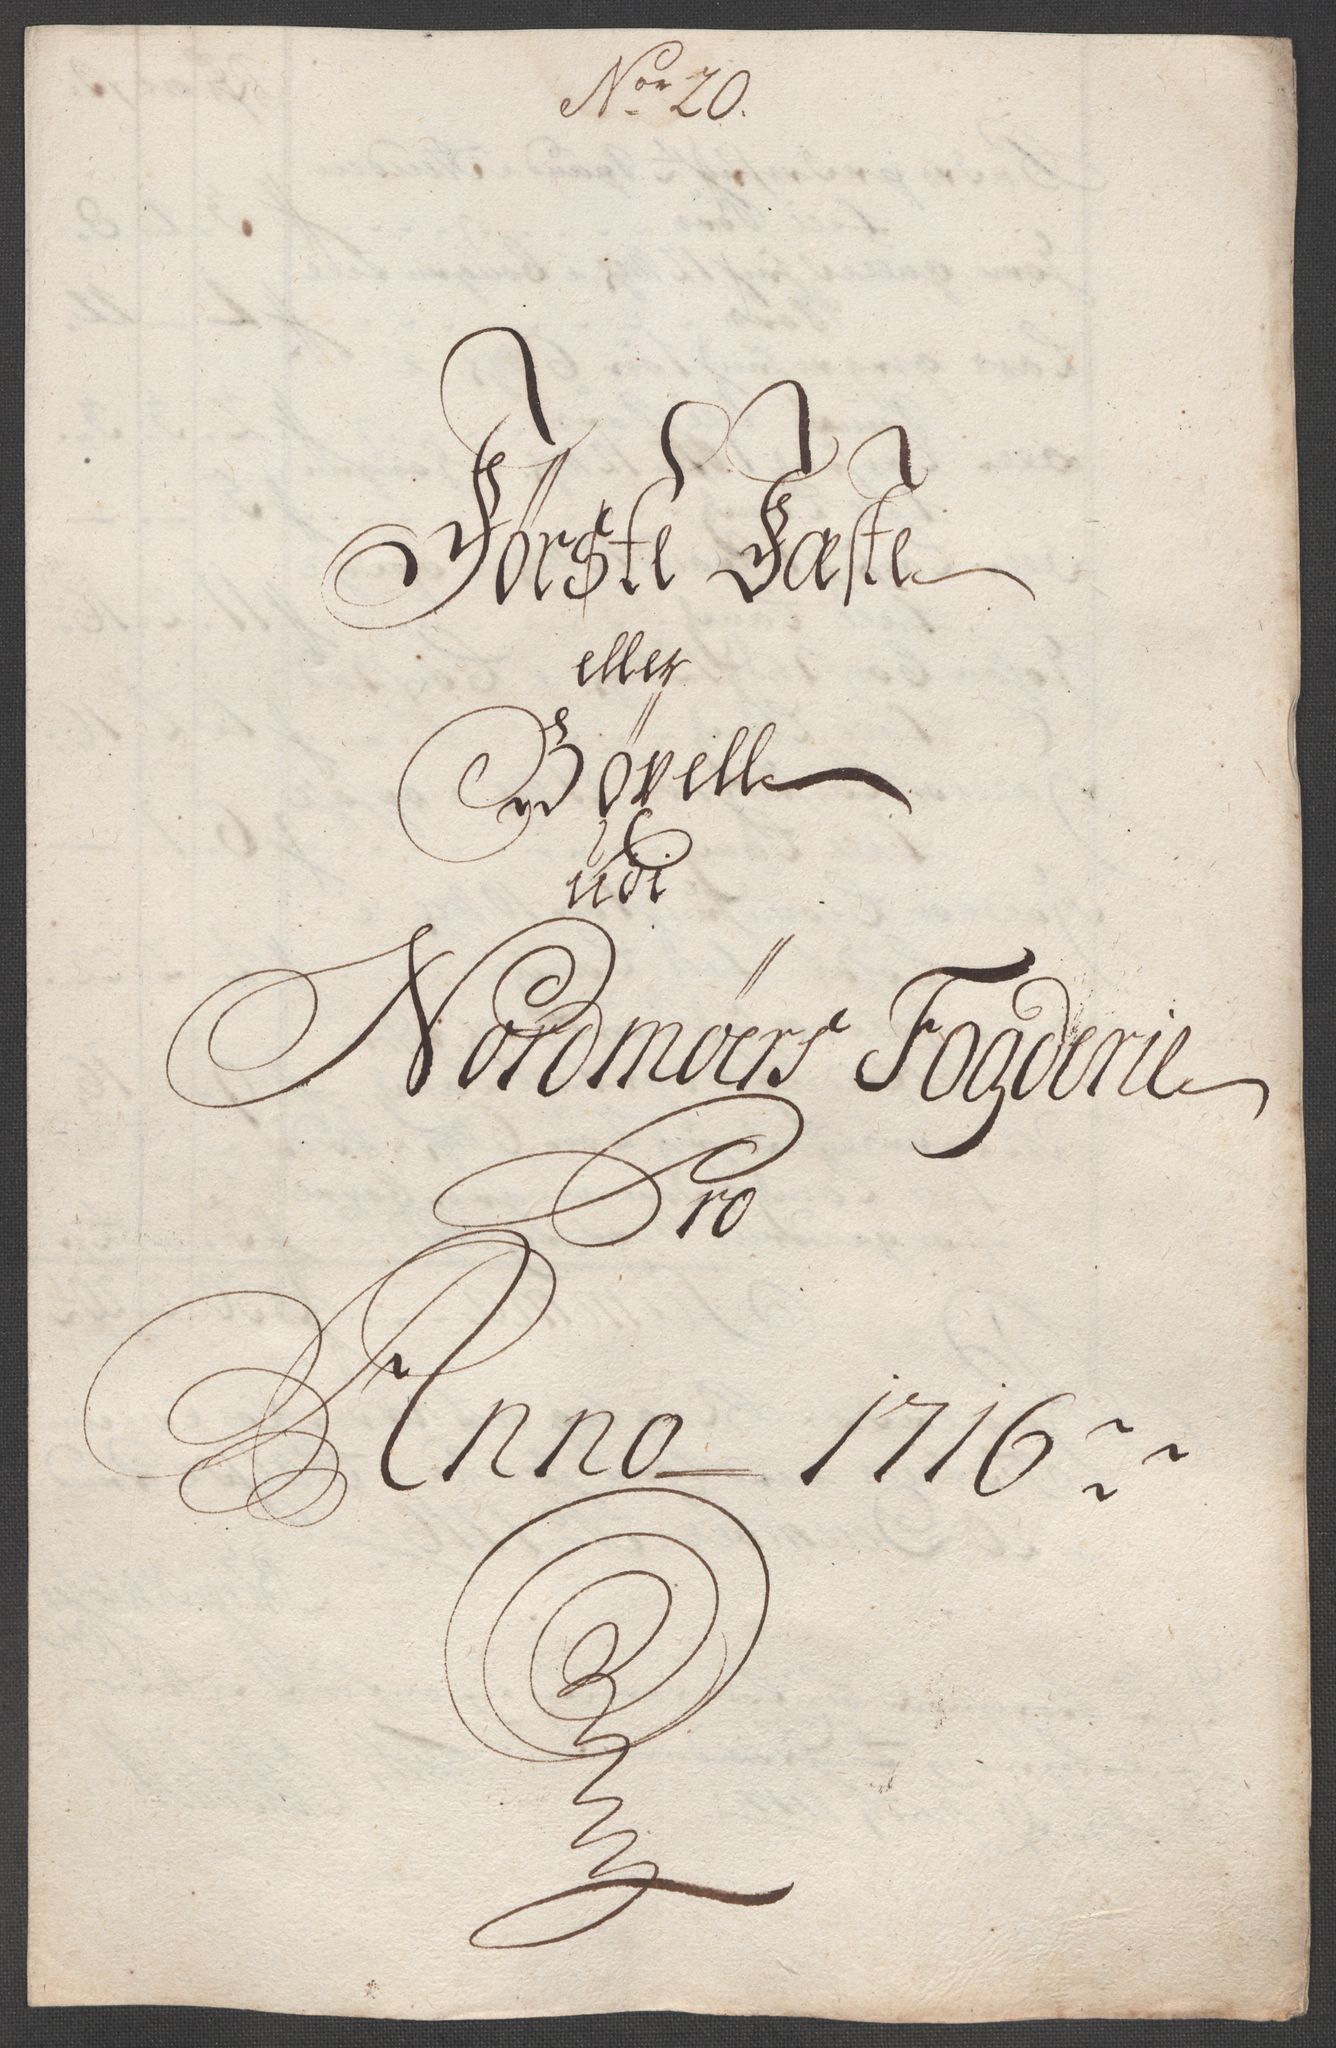 No 20.
Förste Fæste
eller
Böxell
udi
Nordmöers Fogderie
Pro
Anno 1716